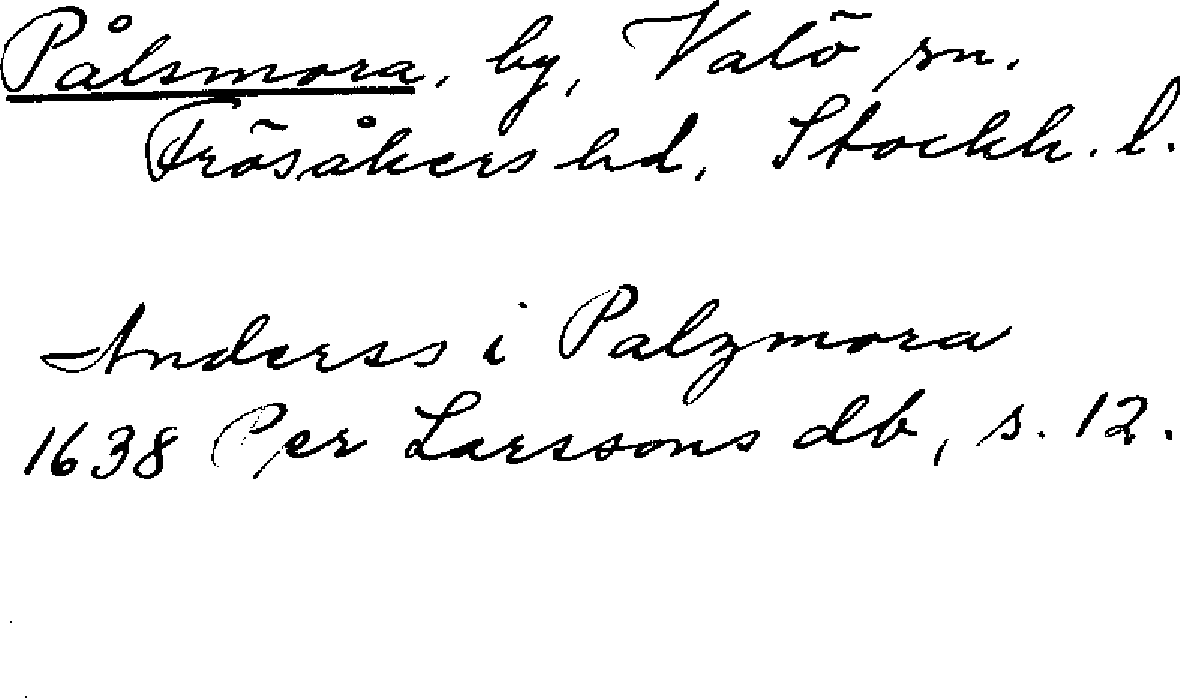 Pålsmora, by, Valö sn.
Frösåkers hd, Stockh. l.
Anderss i Palzmora
1638 Per Larssons db, s. 12.